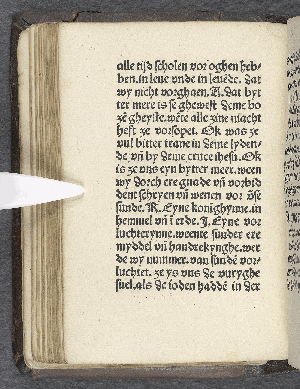 alle tijd scholen vor oghen heb-
ben. in leue vnde in leuēde. dat
wy nicht vorghaen. R. dat byt
ter mere is se ghewest deme bo
zē gheyste. wēte alle zine macht
heft ze vorsopet. Ok was ze
vul bitter trane in deme lyden-
de vn̄ by deme cruce ihesu. Ok
is ze vns eyn bytter meer. ween
wy dorch ere gnade vn̄ vorbid
dent schryen vn̄ wenen vor vse
sunde. R. Eyne konighynne. in
hemmel vn̄ ī erde. J. Eyne vor
luchterynne. wente sunder ere
myddel vn̄ handrekynghe. wer
de wy nummer. van sundē vor-
luchtet. ze ys vns de vuryghe
suel. als de ioden haddē in der